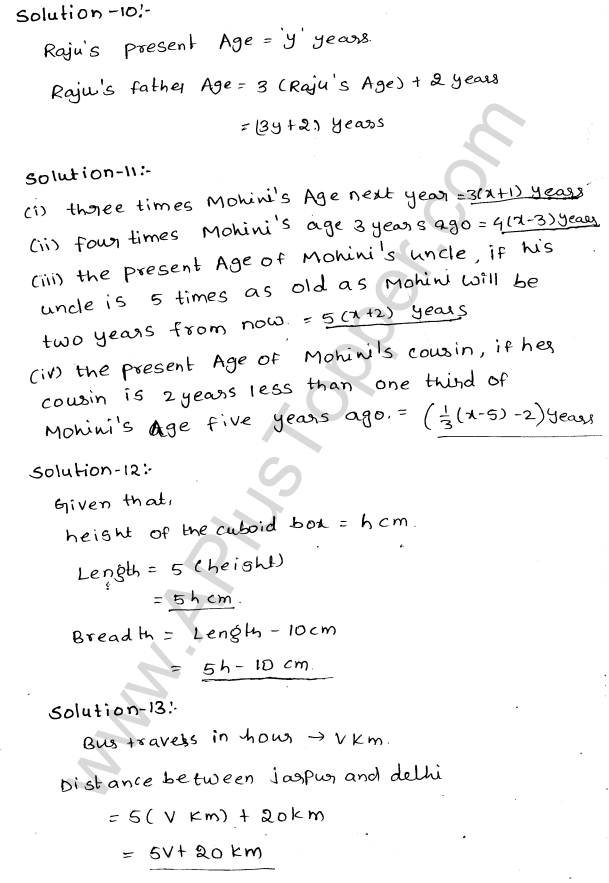 Solution-10:-
Raju's present Age = 'y' years.
Raju's father Age = 3 (Raju's Age) + 2 years
= (3y+2) years
Solution-11:-
(i) three times Mohini's Age next year = 3(x+1) years
(ii) four times Mohini's age 3 years ago = 4(x-3) years
(iii) the present Age of Mohini's uncle, if his
uncle is 5 times as old as Mohini will be
two years from now. = 5(x+2) years
(iv) the present Age of Mohini's cousin, if her
cousin is 2 years less than one third of
Mohini's Age five years ago. = (1/3(x-5)-2) years
Solution-12:-
Given that,
height of the cuboid box = h cm.
Length = 5 (height)
= 5h cm.
Breadth = Length - 10cm
= 5h - 10 cm.
Solution-13:-
Bus travess in hour → V Km.
Distance between jaspur and delhi
= 5( V Km) + 20km
= 5V+ 20 km
www.APlusTopper.com